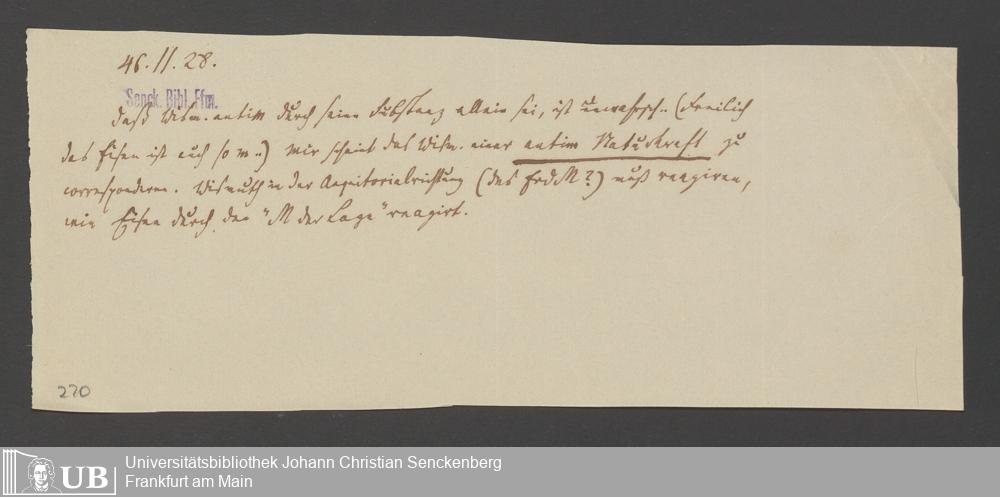 46.11.28.
Senck. Bibl. Ffm.
daß Wism. antim durch seine Substanz allein sei, ist unwahrsch.. (Freilich
das Eisen ist auch so m..) Mir scheint das Wism. einer antim Naturkraft zu
correspondieren. Wismuth in der Aequitorialrichtung (des ErdM?) muß reagiren,
wie Eisen durch den "M der Lage" reagirt.
220
UB
Universitätsbibliothek Johann Christian Senckenberg
Frankfurt am Main